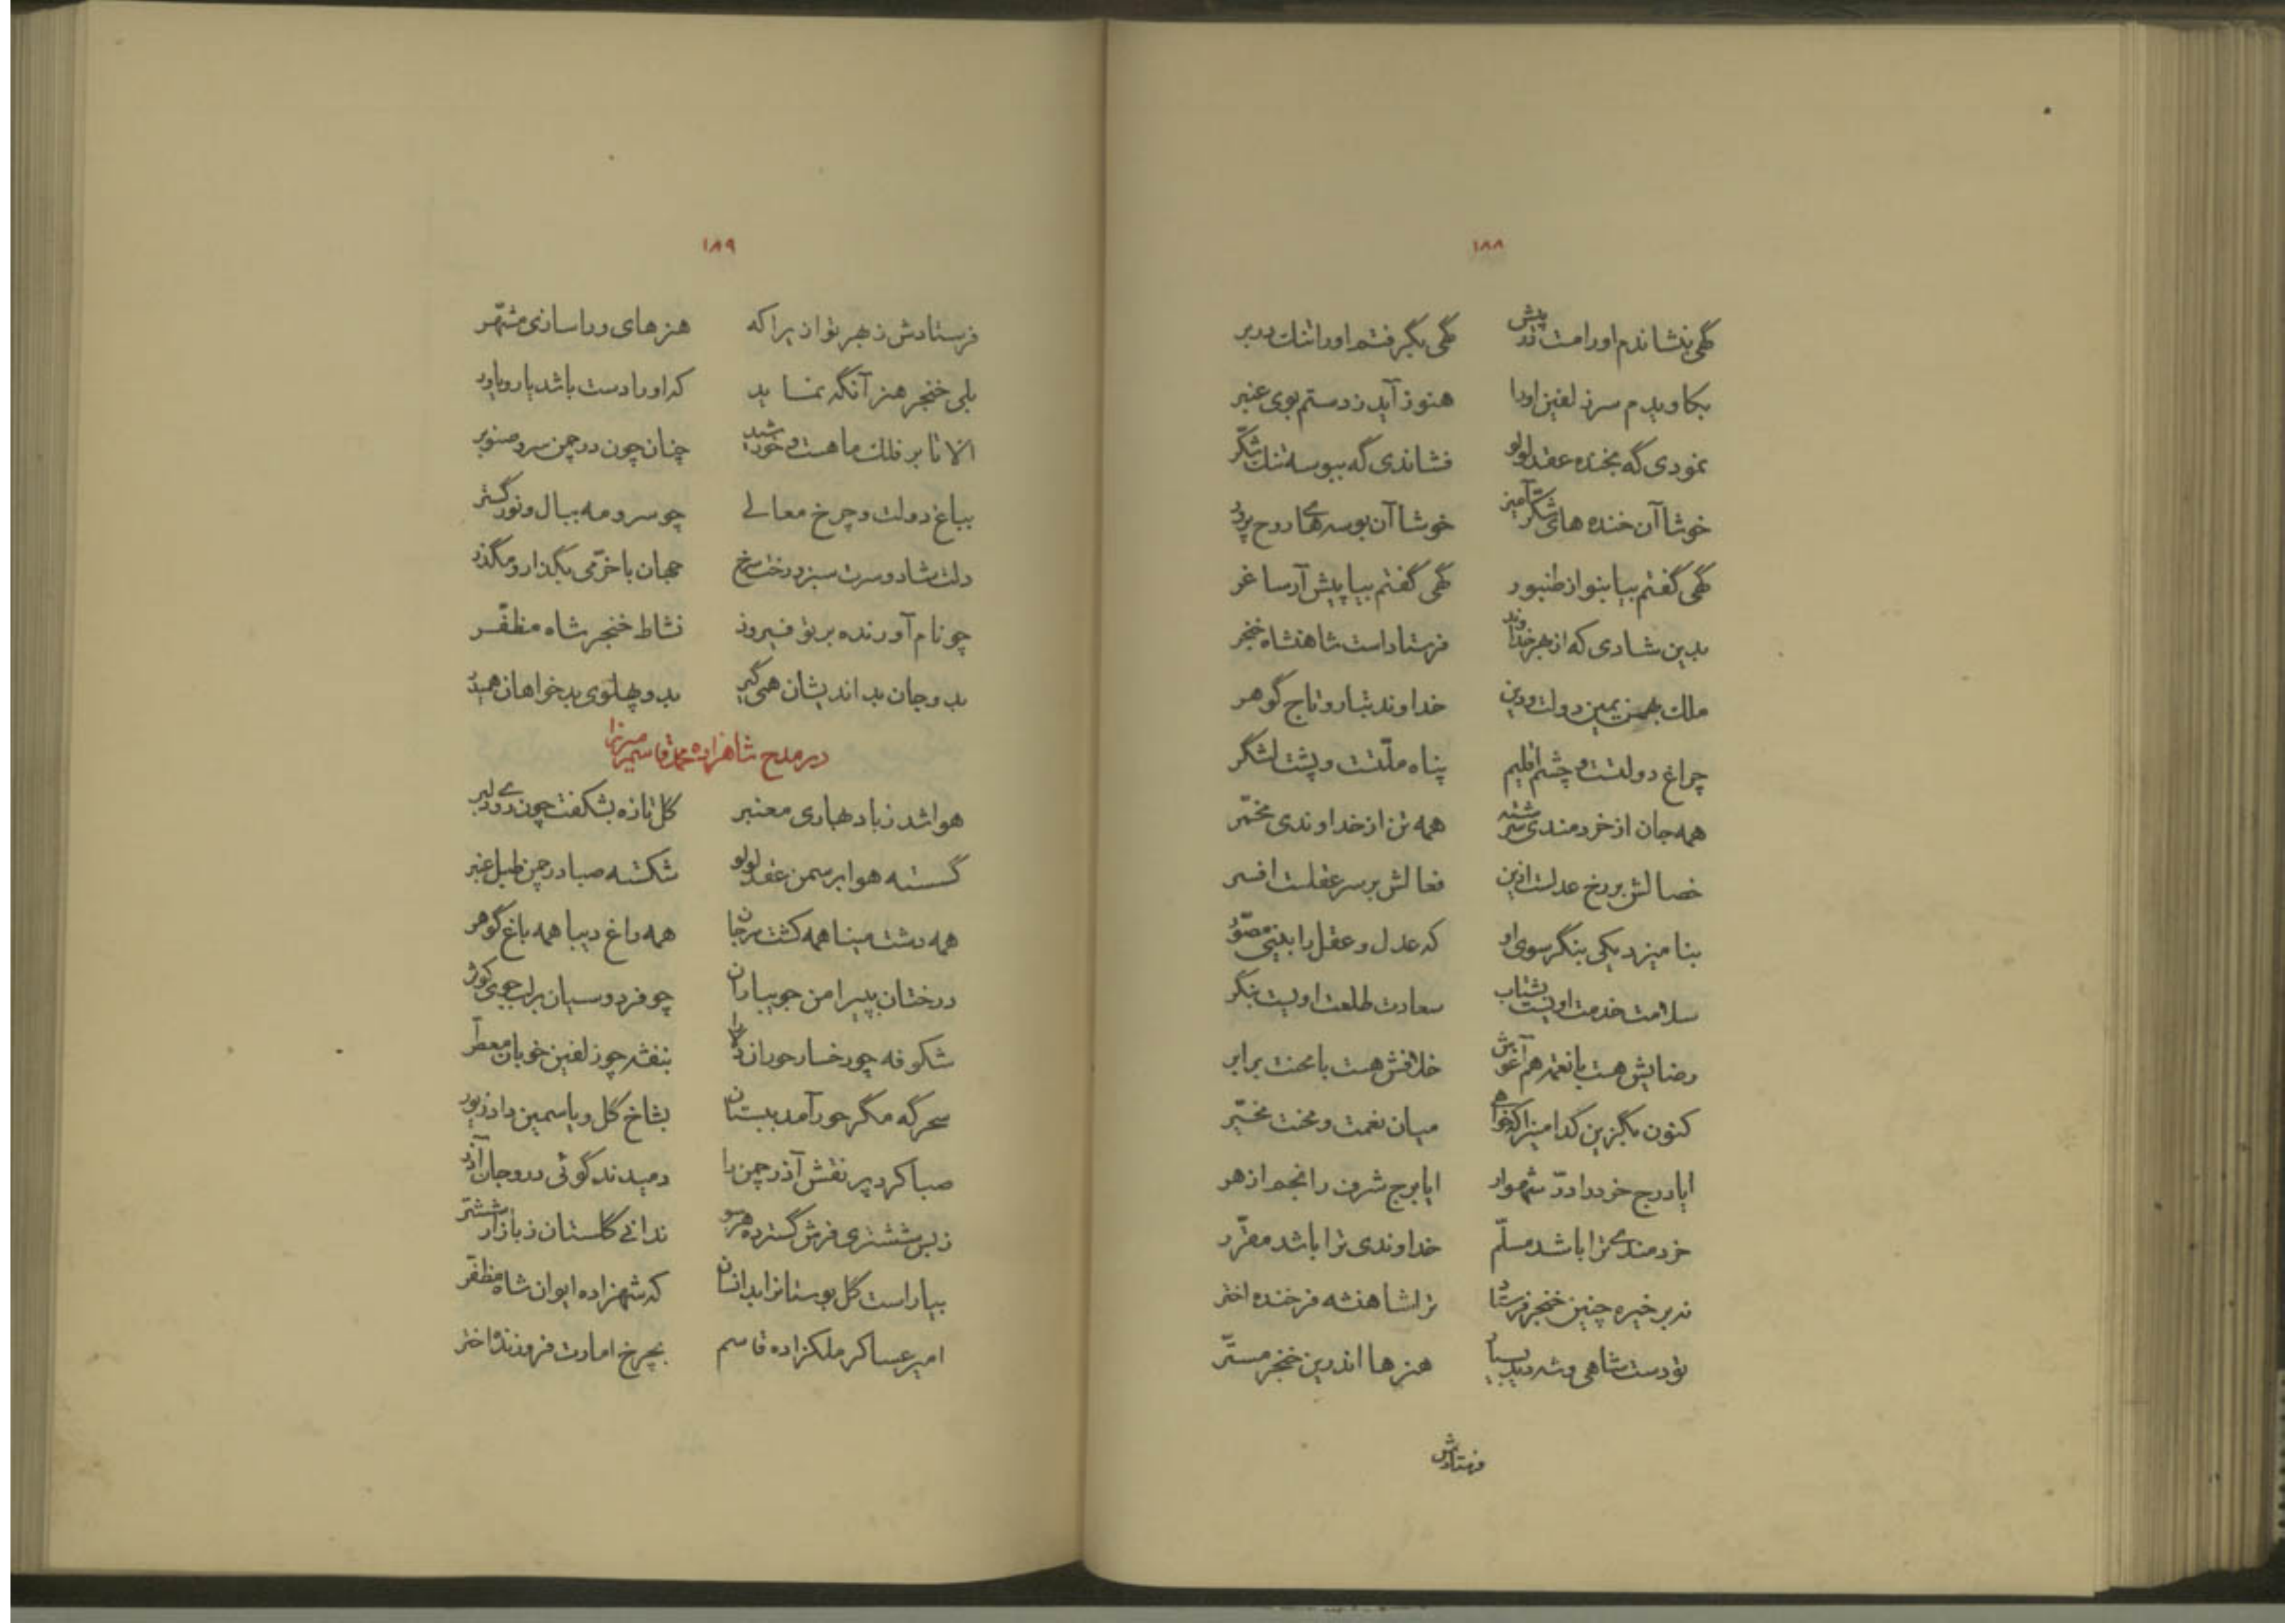 ١٨٨
گهی بنشاندم او را مست در پیش گهی بگرفتم او را تنك در بر
بکاویدم سر زلفین او را هنوز آید ز دستم بوی عنبر
نمودی گه بخنده عقد لولو فشاندی گه ببوسه تنك شکّر
خوشا آن خنده های شکّر آمیز خوشا آن بوسه های روح پرور
گهی گفتم بیا بنواز طنبور گهی گفتم بیا پیش آر ساغر
بدین شادی که از بهر خداوند فرستاداست شاهنشاه خنجر
ملك بهمن یمین دولت و دین خداوند تبار و تاج گوهر
چراغ دولتست و چشم اقلیم پناه ملّتست و پشت لشگر
همه جان از خردمندی سرشته همه تن از خداوندی مخمّر
خصالش بر رخ عدلست آذین فعالش بر سر عقلست افسر
بنامیزد یکی بنگر سوی او که عدل و عقل را بینی مصوّر
سلامت خدمت اویست بشتاب سعادت طلعت اویست بنگر
رضایش هست با نعمت هم آغوش خلافش هست با محنت برابر
کنون بگزین کدامین را که خواهی میان نعمت و محنت مخیّر
ایا درج خرد را درّ شهوار ایا برج شرف را نجم ازهر
خردمندی ترا باشد مسلّم خداوندی ترا باشد مقرّر
نه بر خیره چنین خنجر فرستاد ترا شاهنشه فرخنده اختر
تو دست شاهی و شه دید بسیار هنرها اندرین خنجر مستّر
فرستادش
١٨٩
فرستادش ز بهر تو ازیرا که هنرهای ورا سازی مشتهر
بلی خنجر هنر آنگه نماید که او را دست باشد یار و یاور
الا تا بر فلك ماهست و خورشید چنان چون در چمن سرو و صنوبر
بباغ دولت و چرخ معالی چو سرو و مه ببال و نور گستر
دلت شاد و سرت سبز و رخت سرخ جهان با خرّمی بگذار و مگذر
چو نام آورنده بر تو فیروز نشاط خنجر شاه مظفّر
بدو جان بد اندیشان همی گیر بدو پهلوی بدخواهان همی در
در مدح شاهزاده محمّد قاسم میرزا
هوا شد ز باد بهاری معنبر گل تازه بشکفت چون روی دلبر
گسسته هوا بر سمن عقد لولو شکسته صبا در چمن طبل عنبر
همه دشت مینا همه کشت مرجان همه راغ دیبا همه باغ گوهر
درختان بپیرامن جویباران چو فردوسیان بر لب جوی کوثر
شکوفه چو رخسار حوران بنفشه چو زلفین خوبان معطّر
سحرگه مگر حور آمد ببستان بشاخ گل و یاسمین داد زیور
صبا کرد پر نقش آذر چمن را دمیدند گوئی درو جان آذر
ز بس ششتری فرش گسترده هر سو ندانی گلستان ز بازار ششتر
بیاراست گل بوستانرا بدانسان که شهزاده ایوان شاه مظفّر
امیر عساکر ملکزاده قاسم بچرخ امارت فروزنده اختر